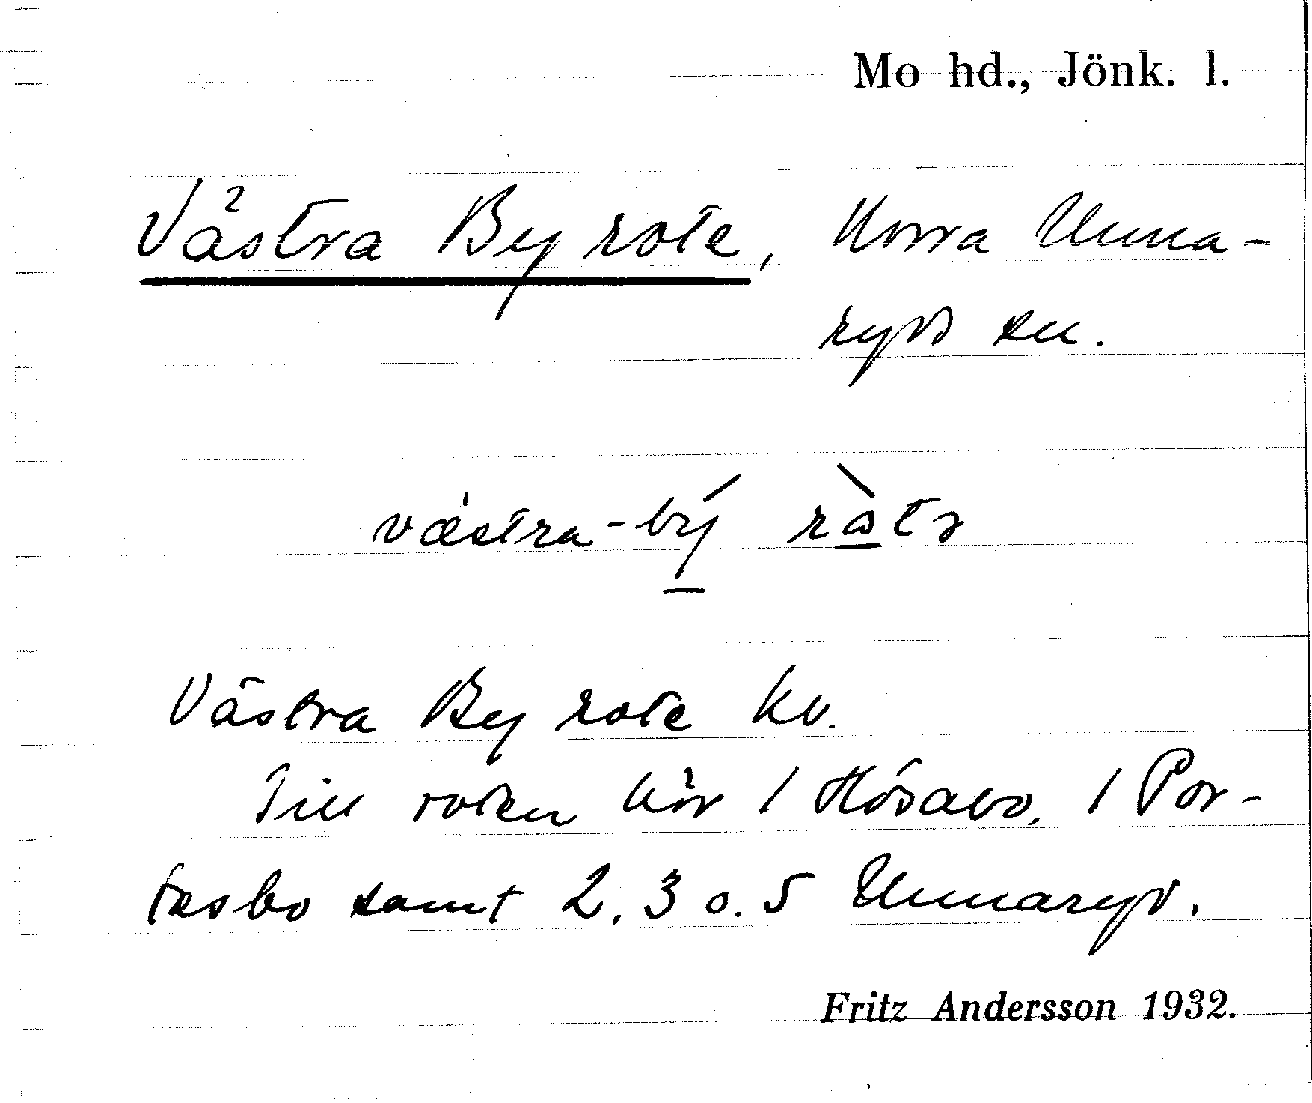 Mo hd., Jönk. l.
Västra By rote, Norra Unna-
ryds sn.
västra-bý ròtə
Västra By rote kv.
Till roten hör 1 Hösabo, 1 Por-
tasbo samt 2, 3 o. 5 Unnaryd.
Fritz Andersson 1932.